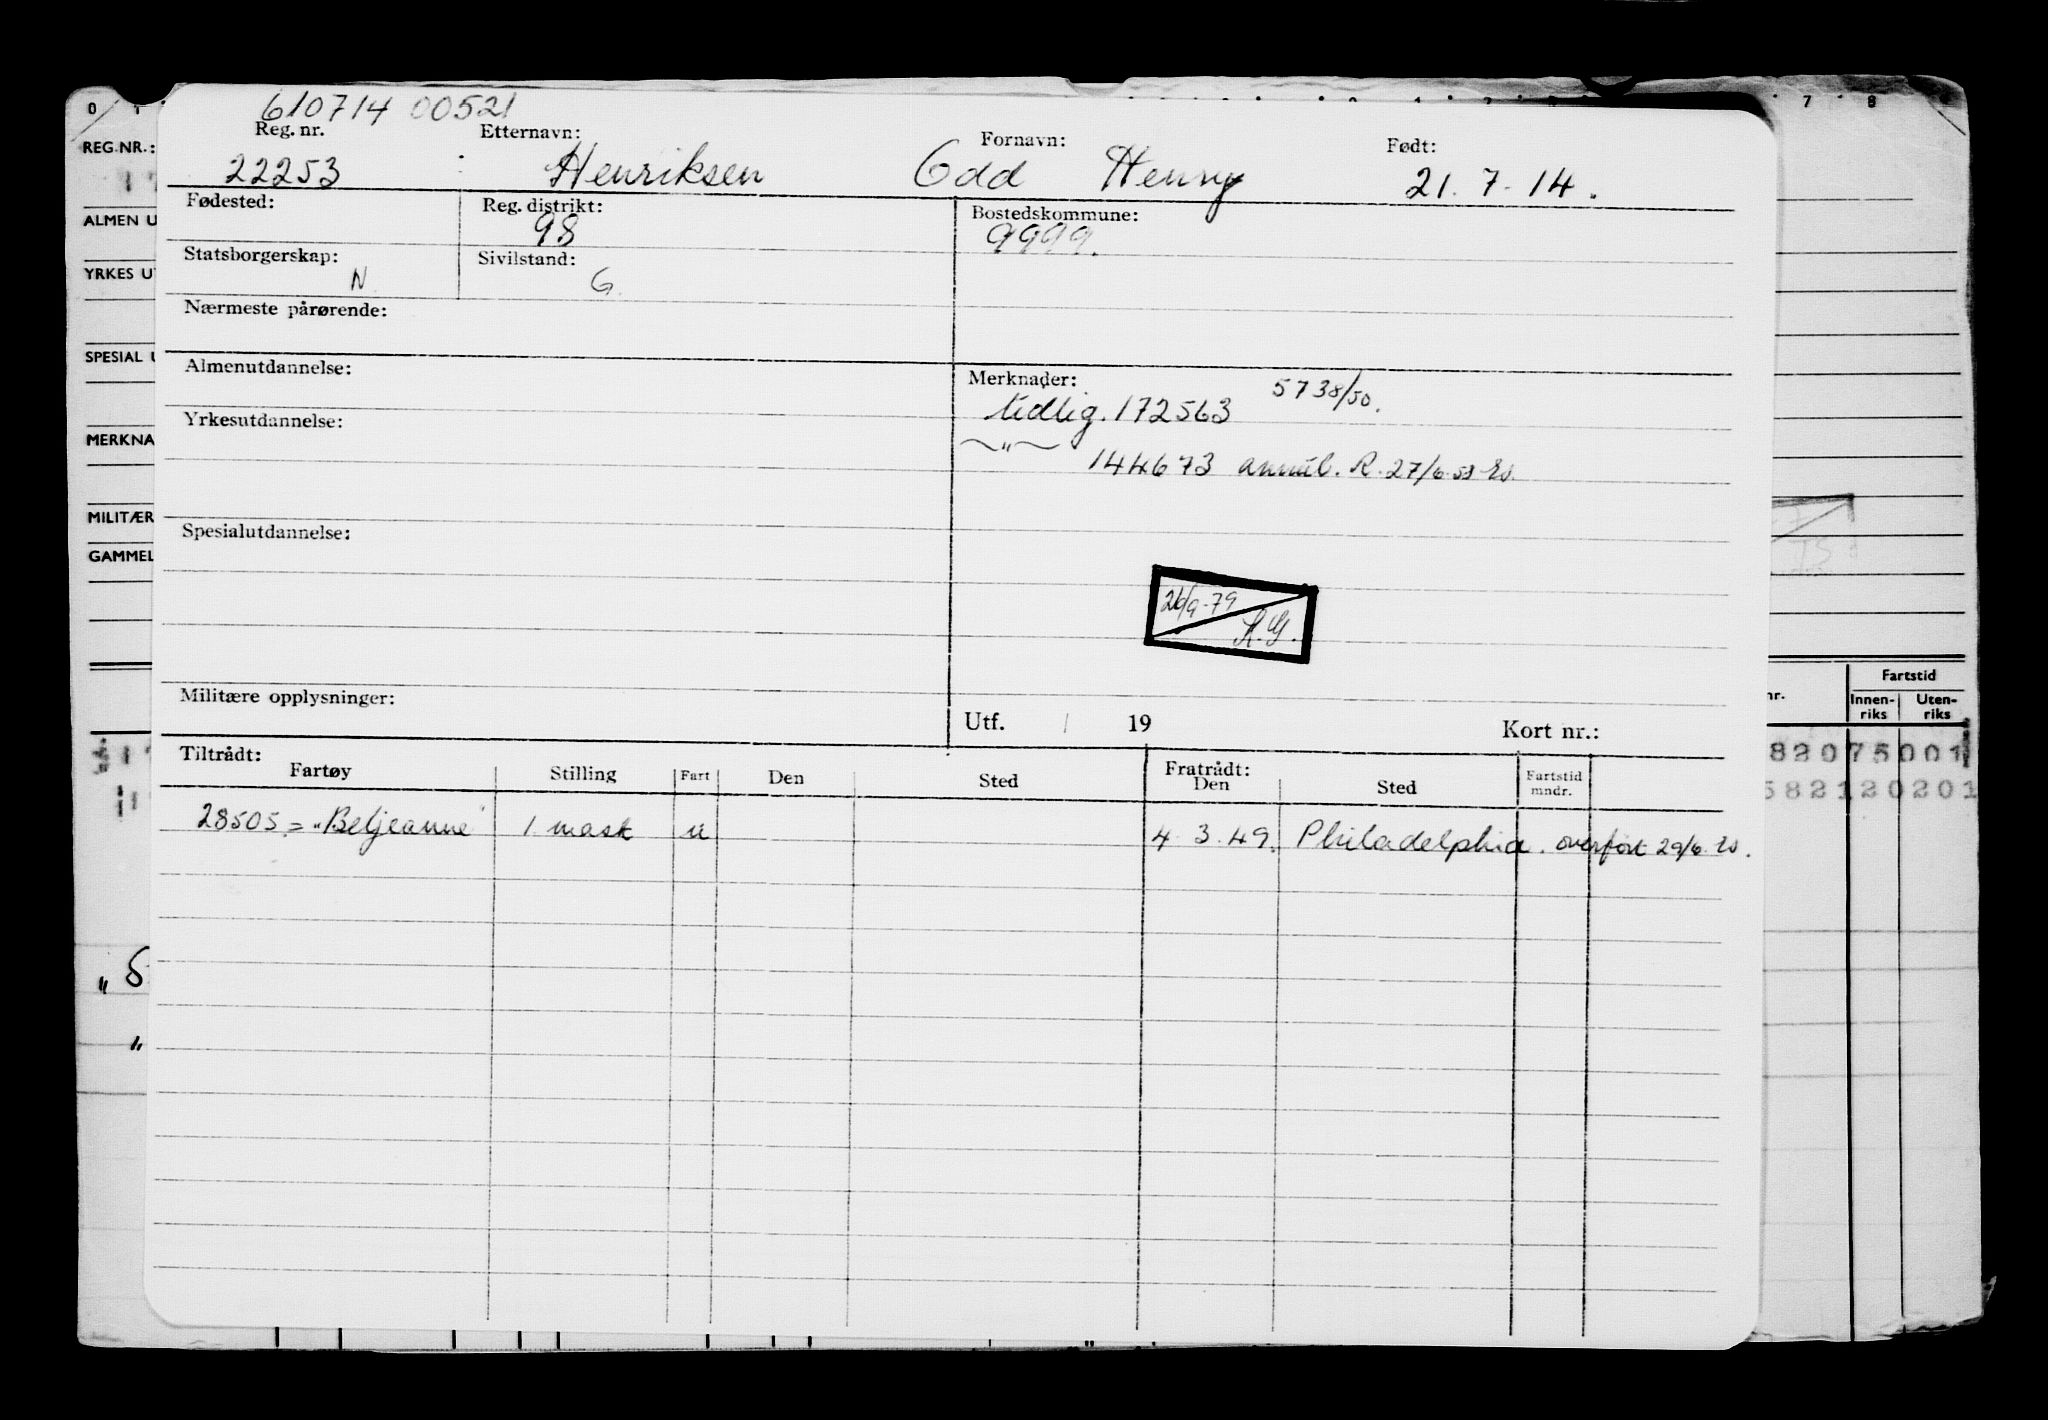 610714 00521
Reg. nr. Etternavn: Fornavn: Født:
22253 Henriksen Odd Henry 21.7.14.
Fødested: Reg. distrikt: Bostedskommune:
98 9999.
Statsborgerskap: Sivilstand:
N G.
Nærmeste pårørende:
Almenutdannelse: Merknader: 5738/50.
tidlig. 172563
Yrkesutdannelse:
〃 144673 annul. R. 27/6.53
Spesialutdannelse:
26/9-79
Militære opplysninger:
Utf. / 19 Kort nr.:
Tiltrådt: Fratrådt:
Fartøy Stilling Fart Den Sted Den Sted Fartstid mndr.
28505 = "Beljeanne" 1 mask u 4.3.49. Philadelphia. overført 29/6.
0 1 7 8
REG.NR.:
ALMEN U
YRKES UT
SPESIAL U
MERKNA
MILITÆR
GAMMEL
nr. Fartstid
Innen-riks Uten-riks
82075001
582120201